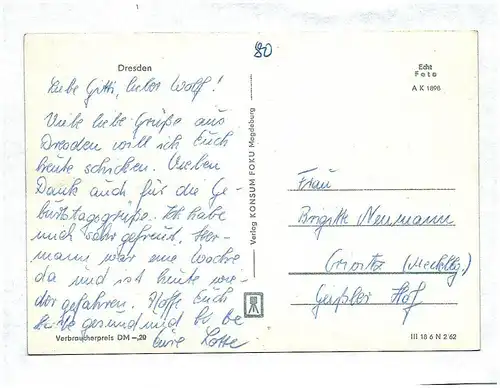 80
Dresden
Liebe Gitti, lieber Wolf!
Viele liebe Grüße aus
Dresden will ich Euch
heute schicken. Vielen
Dank auch für die Ge-
burtstagsgrüße. Ich habe
mich sehr gefreut. Her-
mann war eine Woche
da und ist heute wie-
der gefahren. Hoffe Euch
gesund und
Eure Lotte
Verbraucherpreis DM -,20
Verlag KONSUM FOKU Magdeburg
Echt
Foto
A K 1898
Frau
Brigitte Neumann
Crivitz (Mecklbg.)
Hof
III 18 6 N 2 62